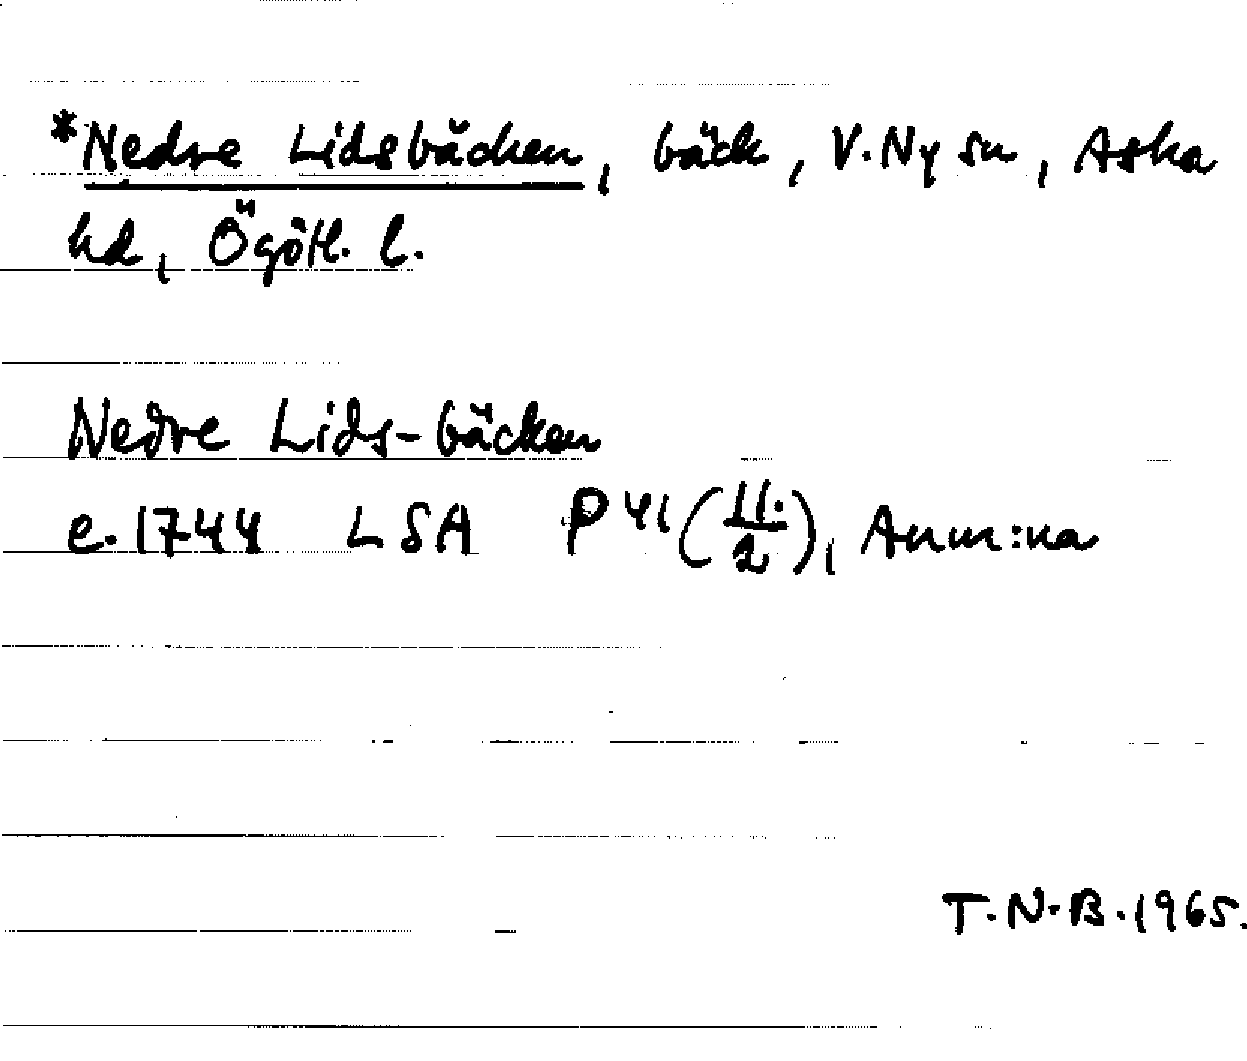 *Nedre Lidsbäcken, bäck, V.Ny sn, Aska
hd, Ögötl. l.
Nedre Lids-bäcken
e.1744 LSA P41(11:2), Anm:na
T.N.B.1965.